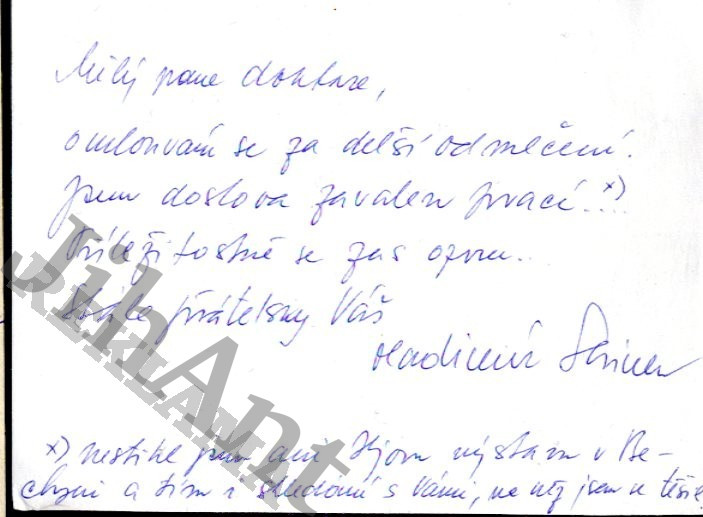 Milý pane doktore,
omlouvám se za delší odmlčení.
Jsem doslova zavalen prací...x)
Příležitostně se zas ozvu...
Stále přátelsky Váš
Vladimír
x) nestihl jsem ani výstavu v Be-
chyni a tím i shledání s Vámi, na něž jsem se těšil
JihAnt